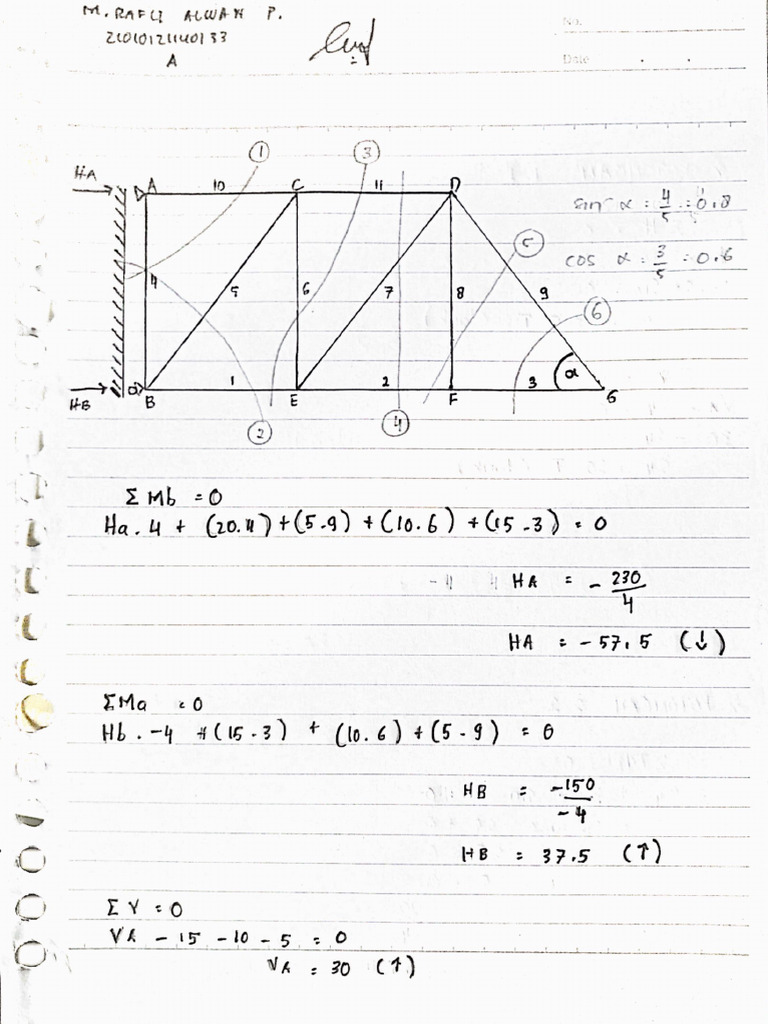 M. RAFLI ALWAN P.
21010121140133
A
No.
Date
HA
A
10
C
11
D
1
3
sin α = 4/5 = 0.8
cos α = 3/5 = 0.6
4
5
6
7
8
9
5
6
α
HB
B
1
E
2
F
3
G
2
4
Σ Mb = 0
Ha. 4 + (20.4) + (5.9) + (10.6) + (15.3) = 0
HA = - 230/4
HA = - 57.5 (↓)
Σ Ma = 0
Hb . -4 + (15.3) + (10.6) + (5.9) = 0
HB = -150/-4
HB = 37.5 (↑)
Σ V = 0
VA - 15 - 10 - 5 = 0
VA = 30 (↑)